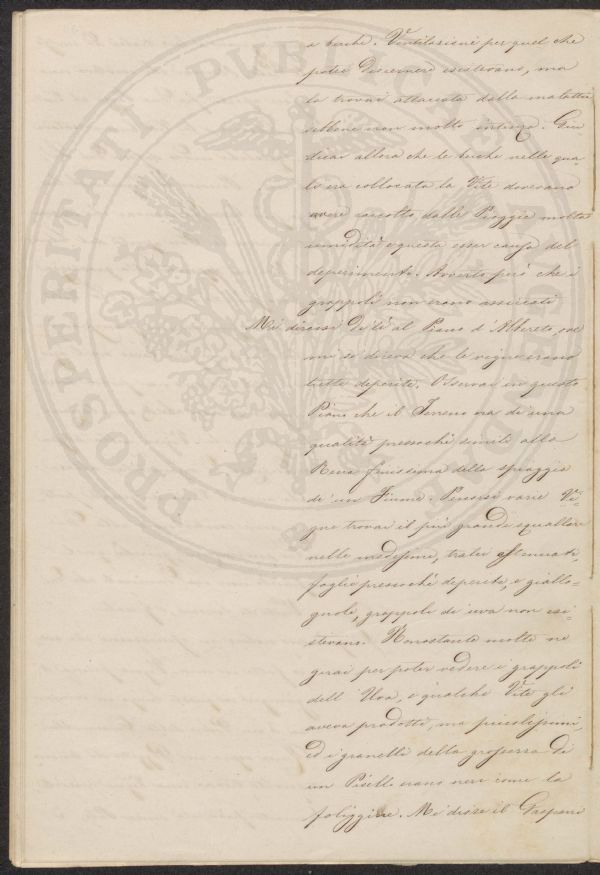 a buche. Ventilazioni per quel che
potei discernere esistevano, ma
la trovai attaccata dalla malattia
sebbene non molto intensa. Giu-
dicai allora che le buche nelle qua-
li era collocata la Vite dovevano
avere raccolto dalle Pioggie molta
umidità e questa esser causa del
deperimento. Avverto però che i
grappoli non erano
Mi diressi di lì al Piano d'Albereto, ove
mi si diceva che le vigne erano
tutte deperite. Osservai in questo
Piano che il Terreno era di una
qualità pressochè simile alla
Rena finissima della spiaggia
de' un Fiume. Percorsi varie Vi-
gne trovai il più grande squallore
nelle medesime, tralci estenuati,
foglie pressochè deperite, e giallo-
gnole, grappoli di uva non esi-
stevano. Nonostante molte ne
girai per poter vedere i grappoli
dell'Uva, e qualche Vite gli
aveva prodotti, ma piccolissimi,
ed i granelli della grossezza di
un Pisello erano neri come la
foliggine. Mi disse il Gaspari
PROSPERITATI PUBLICAE AUGENDAE